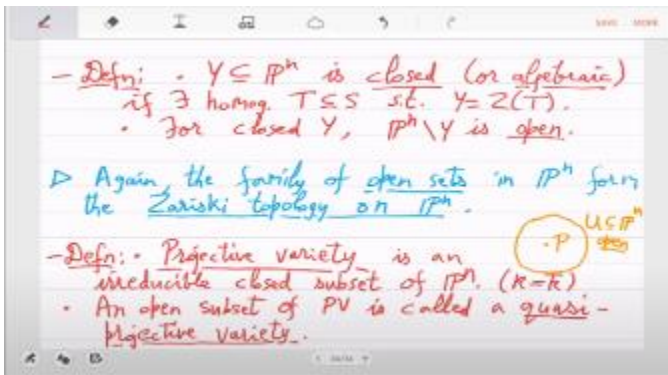 SAVE MORE
- Defn: · Y ⊆ ℙⁿ is closed (or algebraic)
if ∃ homog. T ⊆ S s.t. Y = Z(T).
· For closed Y, ℙⁿ \ Y is open.
▷ Again, the family of open sets in ℙⁿ form
the Zariski topology on ℙⁿ.
· P
U ⊆ ℙⁿ
open
- Defn: · Projective variety is an
irreducible closed subset of ℙⁿ. (k = k̄)
· An open subset of PV is called a quasi-
projective variety.